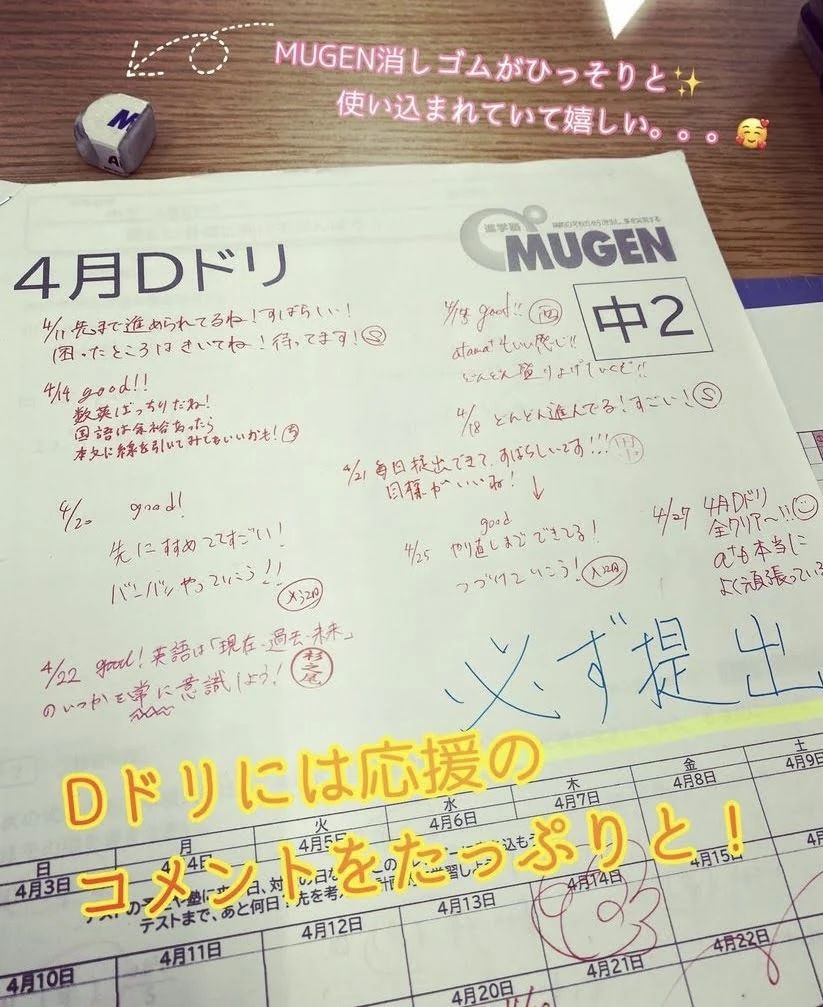 MUGEN消しゴムがひっそりと✨
使い込まれていて嬉しい。。。🥰
M
A
進学塾
MUGEN
4月Dドリ
中2
4/11 先まで進められてるね!すばらしい!
困ったところはきいてね!待ってます!S
4/14 good!!
数英ばっちりだね!
国語は余裕あったら
本文に線を引いてみてもいいかも!
good!!
atama+もいい感じ!!
どんどん
4/18 どんどん進んでる!すごい!S
4/21 毎日提出できて、すばらしいです!!!
目標がいいね!↓
4/20 good!
先にすすめててすごい!
バンバンやっていこう!!
4/25 good
やり直しまでできてる!
つづけていこう!
4/27 4月Dドリ
全クリア〜!!
a+も本当に
よく頑張っている
4/22 good!英語は「現在・過去・未来」
のいつかを常に意識しよう!杉之尾
必ず提出
Dドリには応援の
コメントをたっぷりと!
日 月 火 水 木 金 土
4月3日 4月4日 4月5日 4月6日 4月7日 4月8日 4月9日
テストまで、あと何日?先を考え
4月10日 4月11日 4月12日 4月13日 4月14日 4月15日
4月20日 4月21日 4月22日